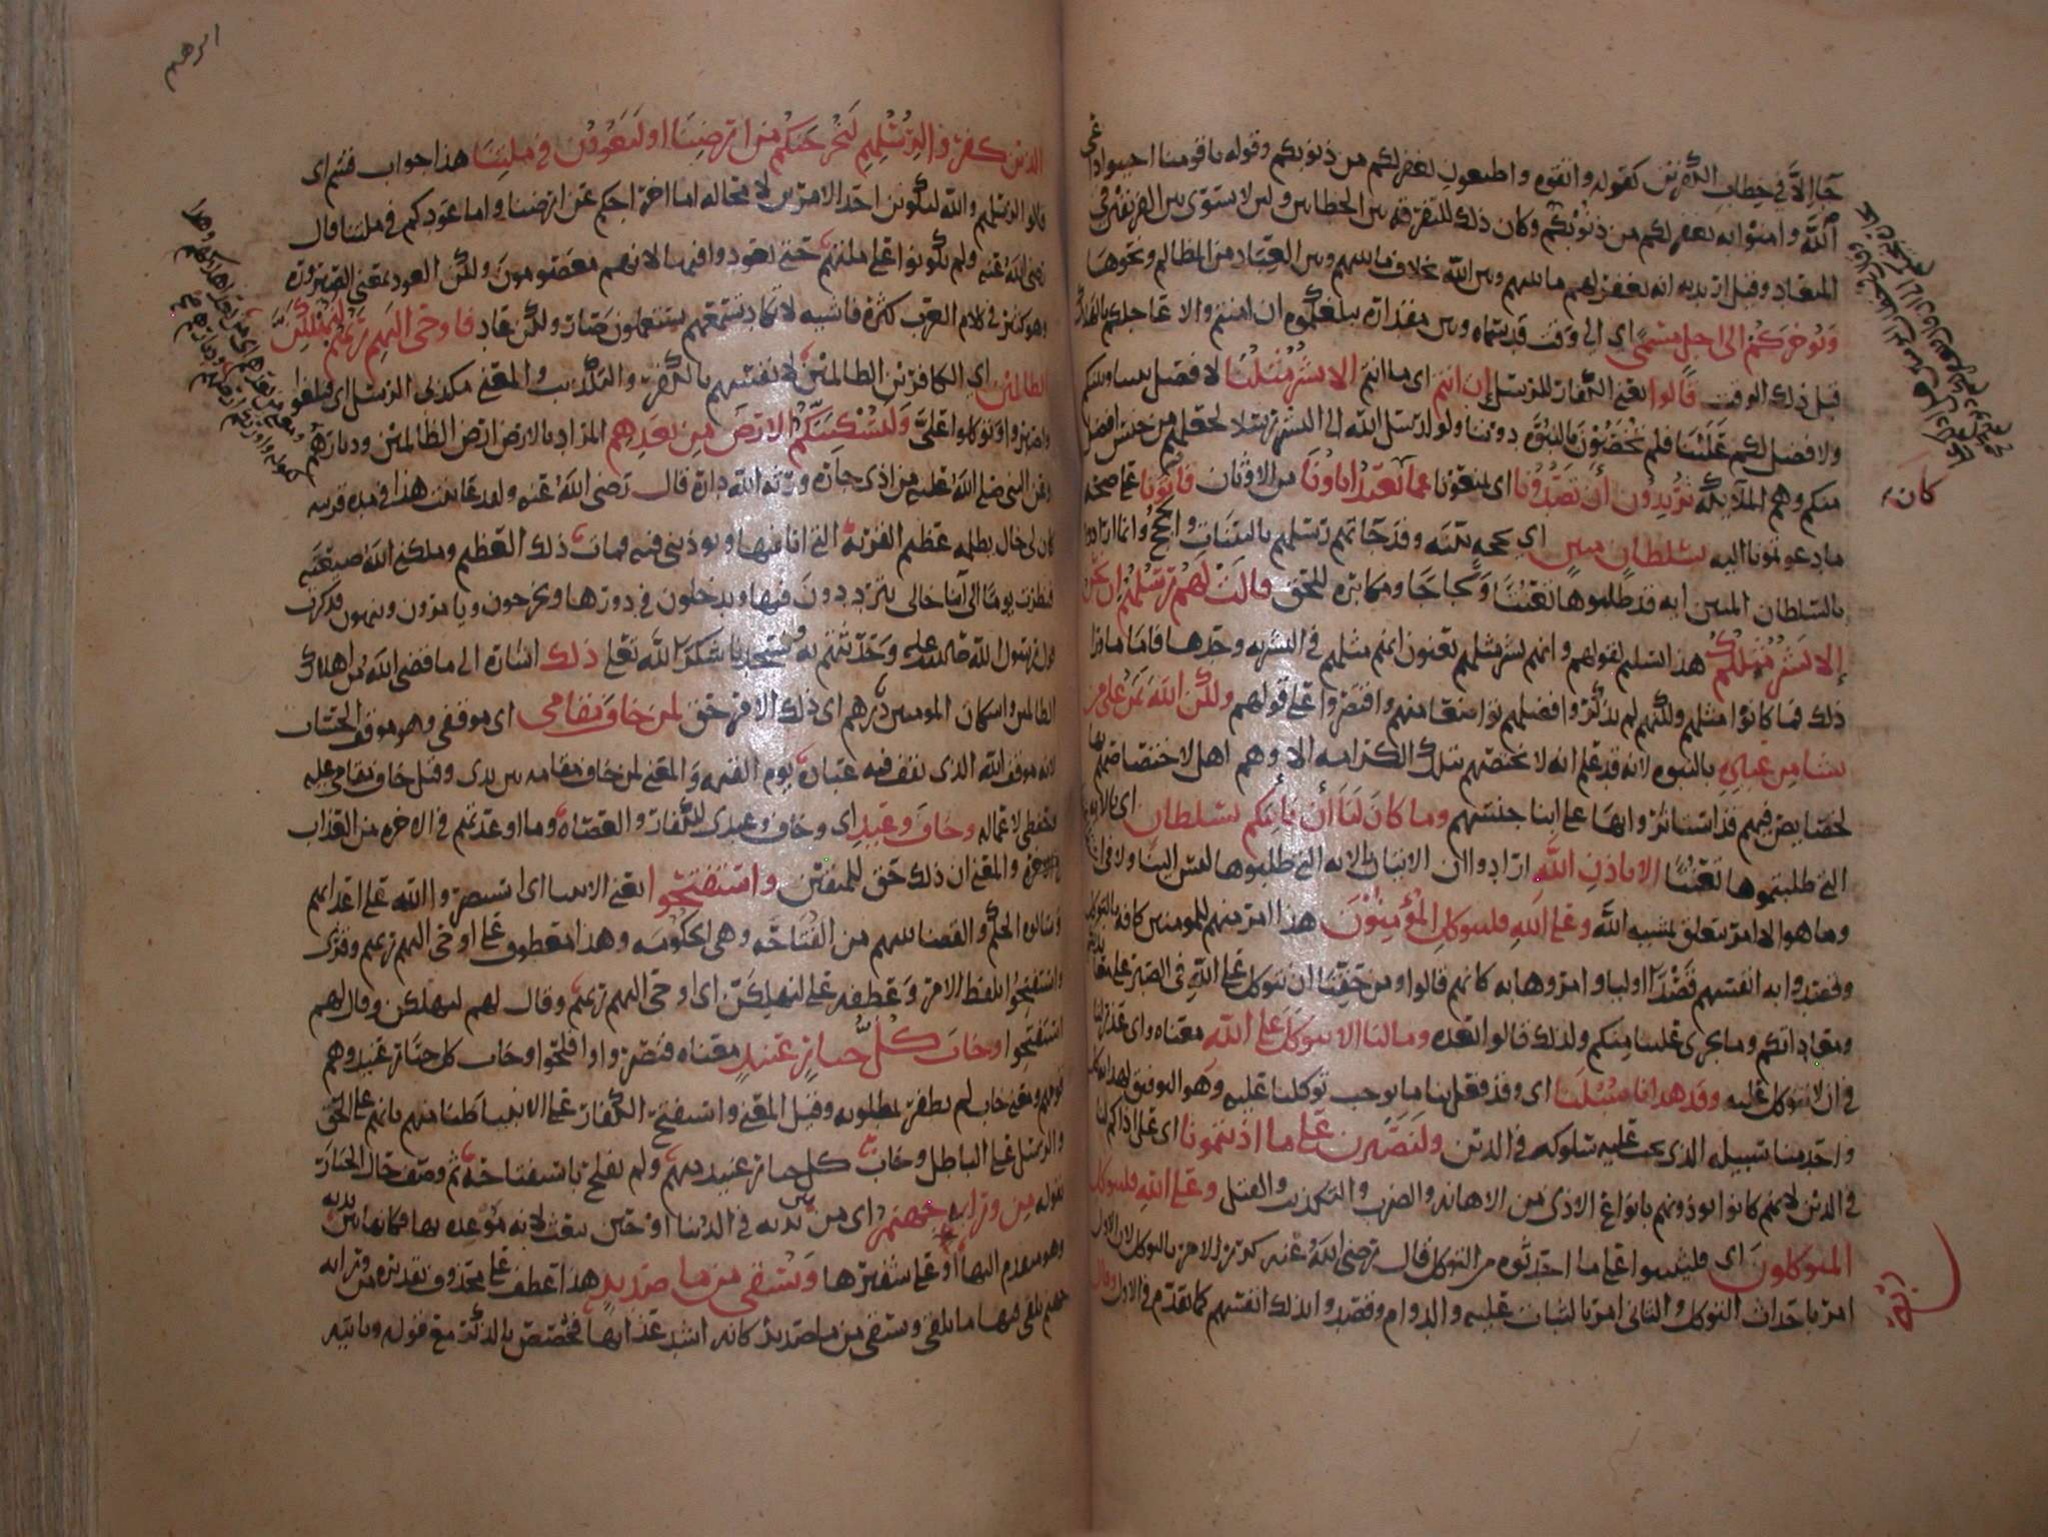 جاء الا في خطاب الكفرين كقوله واتقوه واطيعون يغفر لكم من ذنوبكم وقوله يا قومنا اجيبوا داعي
الله وامنوا به يغفر لكم من ذنوبكم وكان ذلك للتفرقة بين الخطابين وليلا يستوي بين الفريقين في
الميعاد وقيل اريد به انه يغفر لهم ما بينهم وبين الله بخلاف ما بينهم وبين العباد من المظالم ونحوها
ويوخركم الى اجل مسمى اي الى وقت قد سماه وبين مقداره يبلغكموه ان امنتم والا عاجلكم بالهلاك
قبل ذلك الوقت قالوا يعني الكفار للرسل ان انتم اي ما انتم الا بشر مثلنا لا فضل بيننا وبينكم
ولا فضل لكم علينا فلم تخصون بالنبوة دوننا ولو ارسل الله الى البشر رسلا لجعلهم من جنس افضل
منكم وهم الملائكة تريدون ان تصدونا اي تمنعونا عما يعبد اباونا من الاوثان فاتونا على صحة
كان
ما تدعوننا اليه بسلطان مبين اي بحجة بينة وقد جاءتهم رسلهم بالبينات والحجج وانما ارادوا
بالسلطان المبين اية قد طلبوها تعنتا ولجاجا ومكابرة للحق قالت لهم رسلهم ان نحن
الا بشر مثلكم هذا تسليم لقولهم وانهم بشر مثلهم يعنون انهم مثلهم في البشرية وحدها فاما ما وراء
ذلك فما كانوا مثلهم ولكنهم لم يذكروا فضلهم تواضعا منهم واقتصروا على قولهم ولكن الله يمن على من
يشا من عباده بالنبوة لانه قد علم انه لا يختصهم بتلك الكرامة الا وهم اهل لاختصاصهم بها
لخصايص فيهم قد استاثروا بها على ابنا جنسهم وما كان لنا ان ناتيكم بسلطان اي بالاية
التي طلبتموها تعنتا الا باذن الله ارادوا ان الاتيان بالاية التي طلبوها ليس الينا ولا في
وما هو الا امر يتعلق بمشية الله وعلى الله فليتوكل المؤمنون هذا امر منهم للمومنين كافة بالتوكل
وقصدوا به انفسهم قصدا اوليا وامروها به كانهم قالوا ومن حقنا ان نتوكل على الله في الصبر على
ومعاداتكم وما يجري علينا منكم ولذلك قالوا بعده وما لنا الا نتوكل على الله معناه واي عذر لنا
في ان لا نتوكل عليه وقد هدانا سبلنا اي وقد فعل بنا ما يوجب توكلنا عليه وهو التوفيق لهداية كل
واحد منا سبيله الذي يجب عليه سلوكه في الدين ولنصبرن على ما اذيتمونا اي على اذاكم لنا
في الدين لانهم كانوا يوذونهم بانواع الاذى من الاهانة والضرب والتكذيب والقتل وعلى الله فليتوكل
المتوكلون اي فليثبتوا على ما احدثوه من التوكل قال رضي الله عنه كرر الامر بالتوكل لان الاول
امر باحداث التوكل والثاني امر بالثبات عليه والدوام وقصدوا بذلك انفسهم كما تقدم في الاول وقال
الذين كفروا لرسلهم لنخرجنكم من ارضنا او لتعودن في ملتنا هذا جواب قسم اي
قالوا لرسلهم والله ليكونن احد الامرين لا محالة اما اخراجكم عن ارضنا واما عودكم في ملتنا قال
رضي الله عنه ولم يكونوا على ملتهم حتى يعودوا فيها لانهم معصومون ولكن العود بمعنى الصيرورة
وهو كثير في كلام العرب كثرة فاشية لا تكاد تسمعهم يستعملون صار ولكن عاد فاوحى اليهم ربهم لنهلكن
الظالمين اي الكافرين الظالمين لانفسهم بالكفر والتكذيب والمعنى مكذبي الرسل اي فبلغوا
واصبروا وتوكلوا علي ولنسكننكم الارض من بعدهم المراد بالارض ارض الظالمين وديارهم
وعن النبي صلى الله عليه من اذى جاره ورثه الله داره قال رضي الله عنه ولقد عاينت هذا في مدة قريبة
كان لي خال يظلمه عظيم القرية التي انا فيها ويوذيني فيه فمات ذلك العظيم وملكني الله ضيعته
فنظرت يوما الى ابنا خالي يترددون فيها ويدخلون في دورها ويخرجون ويامرون وينهون فذكرت
قول رسول الله صلى الله عليه وحدثتهم به وسجدنا شكرا لله تعالى ذلك اشارة الى ما قضى الله من اهلاك
الظالمين واسكان المومنين ديارهم اي ذلك الامر حق لمن خاف مقامي اي موقفي وهو موقف الحساب
لانه موقف الله الذي يقف فيه عباده يوم القيمة والمعنى لمن خاف مقامه بين يدي وقيل خاف مقامي عليه
وحفظي لاعماله وخاف وعيد اي وخاف وعيدي للكفار والعصاة وما اوعدتهم في الاخرة من العذاب
والمعنى ان ذلك حق للمتقين واستفتحوا يعني الانبيا اي استنصروا الله على اعدائهم
وسالوه الحكم والقضا بينهم من الفتاحة وهي الحكومة وهذا معطوف على اوحى اليهم ربهم وقرئ
واستفتحوا بلفظ الامر وعطفه على لنهلكن اي اوحى اليهم ربهم وقال لهم لنهلكن وقال لهم
استفتحوا وخاب كل جبار عنيد معناه فنصروا وافلحوا وخاب كل جبار عنيد وهم
قومهم ومعنى خاب لم يظفر بمطلوبه وقيل المعنى واستفتح الكفار على الانبيا ظنا منهم بانهم على الحق
والرسل على الباطل وخاب كل جبار عنيد منهم ولم يفلح باستفتاحه ثم وصف حال الجبار
بقوله من ورائه جهنم اي من بين يديه في الدنيا او حين يبعث لانه موعده بها فكانها بين يديه
وهو مقدم اليها او على شفيرها ويسقى من ماء صديد هذا عطف على محذوف تقديره من ورائه
جهنم يلقى فيها ما يلقى ويسقى من ما صديد كانه اشد عذابها فخصص بالذكر مع قوله وياتيه